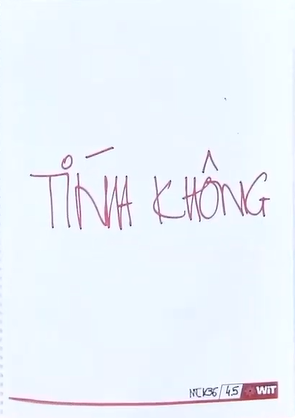 TÍNH KHÔNG
NCK36 / 45 WiT